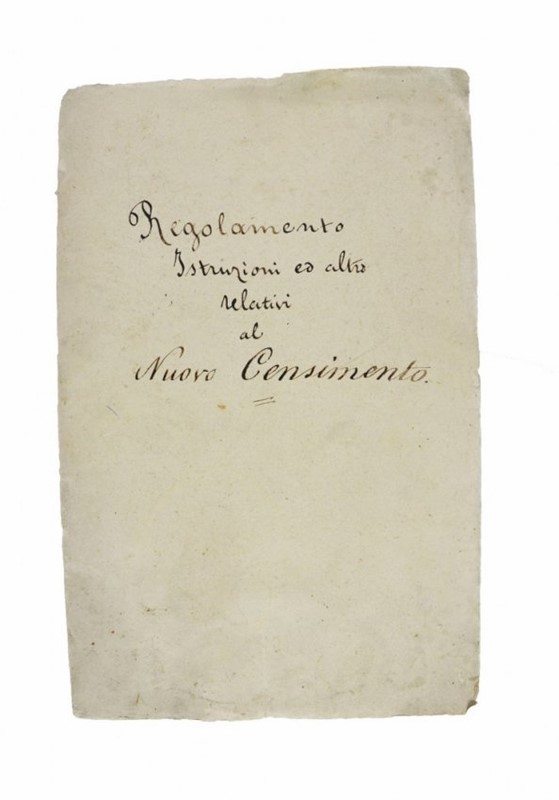 Regolamento
Istruzioni ed altro
relativi
al
Nuovo Censimento.